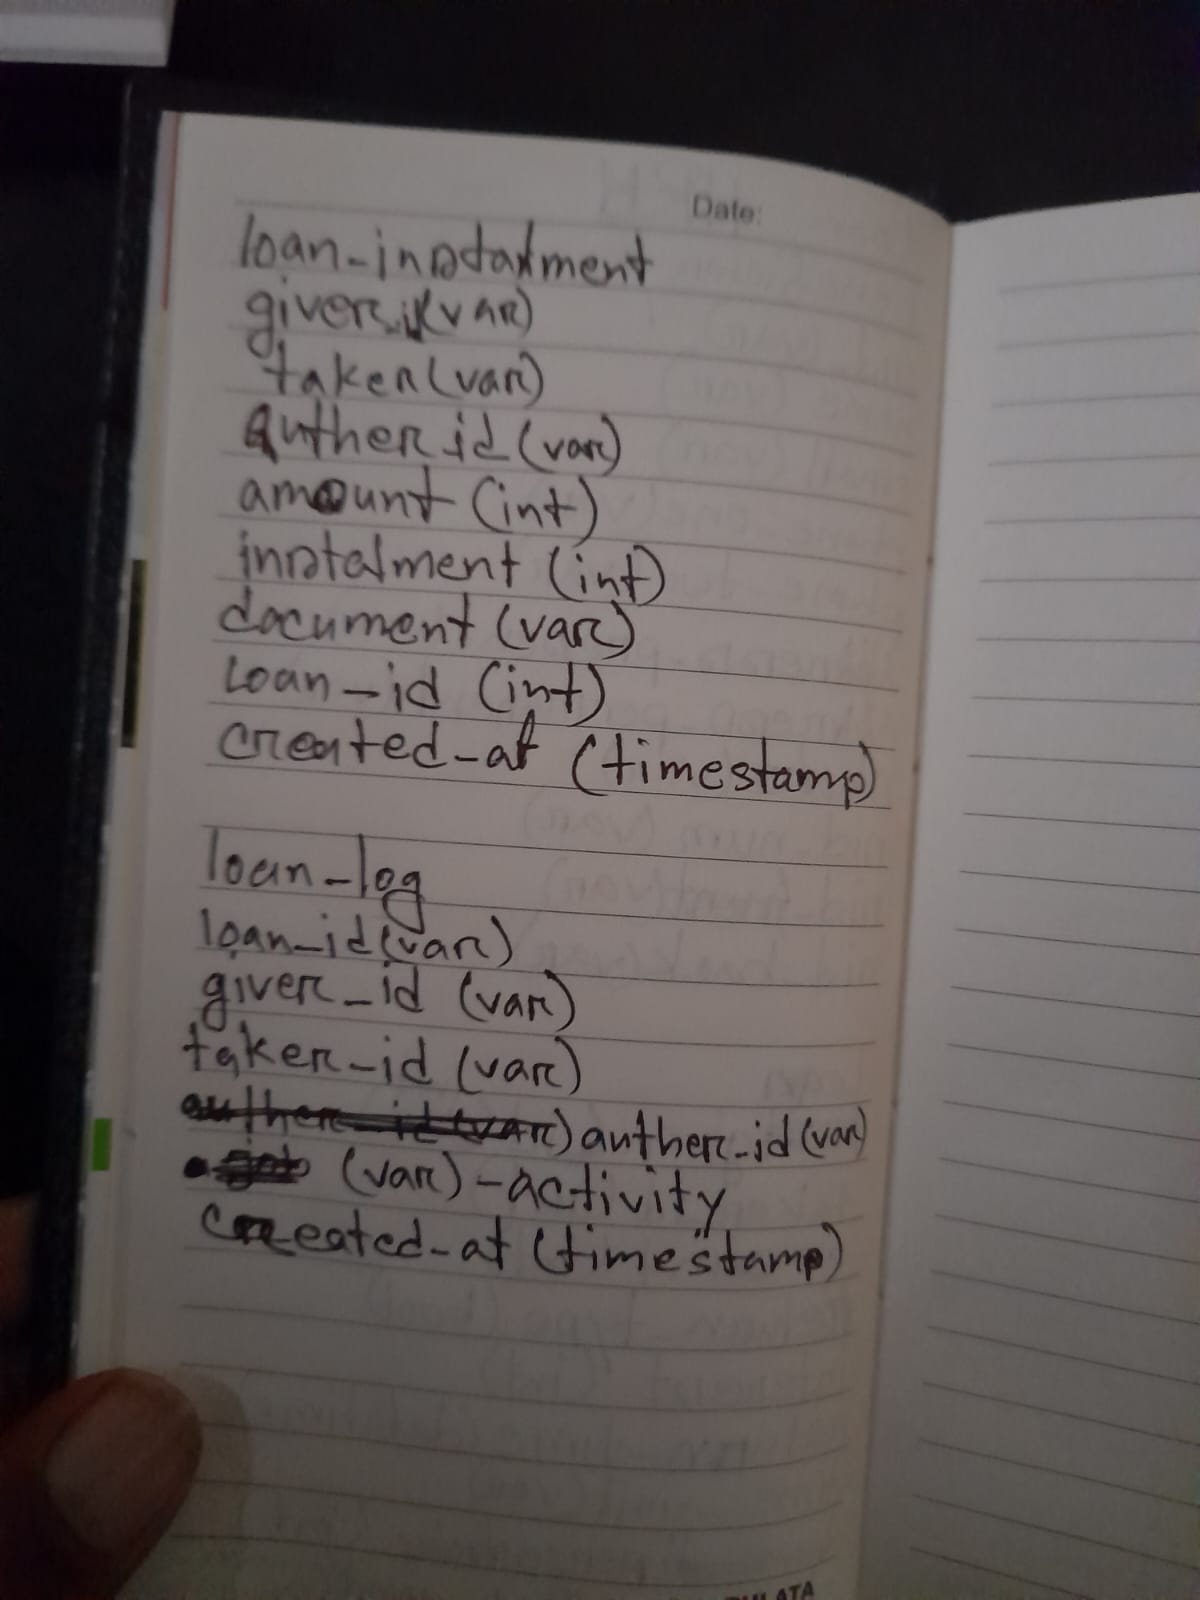 Date:
loan-instalment
giver (var)
taker (var)
auther id (var)
amount (int)
instalment (int)
document (var)
Loan-id (int)
created-at (timestamp)
loan-log
loan-id (var)
giver-id (var)
taker-id (var)
auther-id (var) auther-id (var)
(var)-activity
created-at (timestamp)